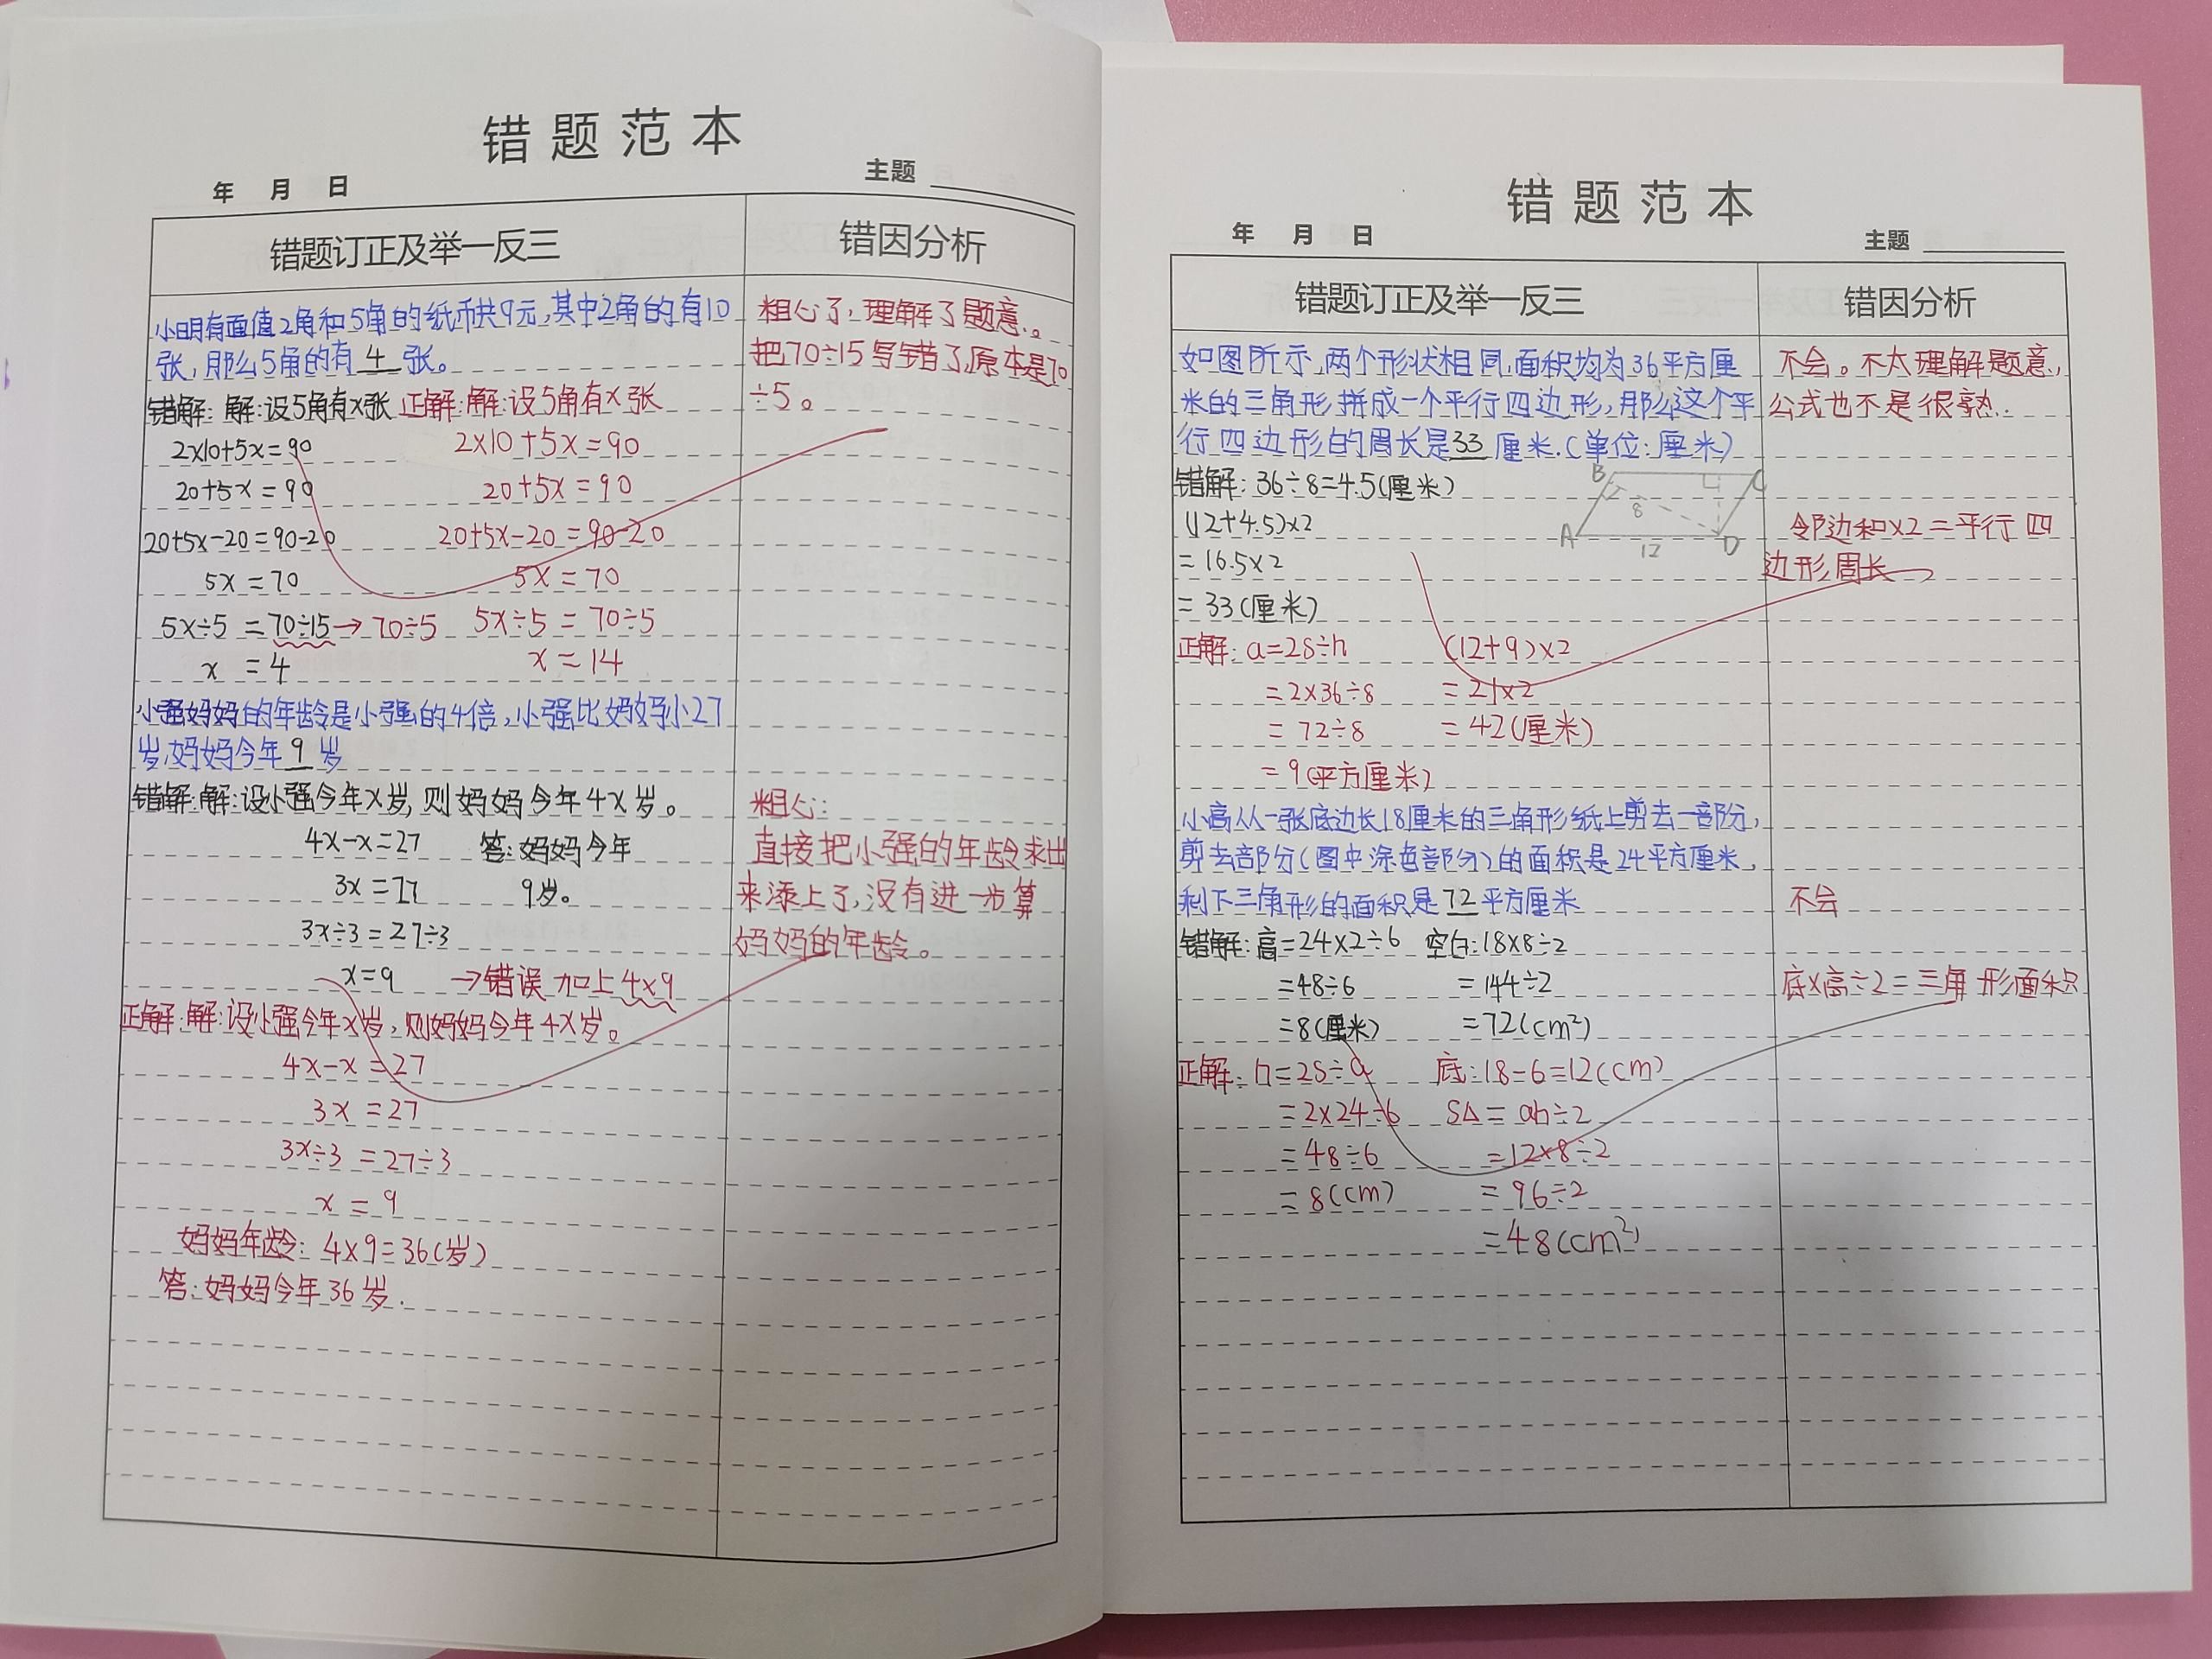 错题范本
年 月 日 主题
错题订正及举一反三 错因分析
小明有面值2角和5角的纸币共9元,其中2角的有10
张,那么5角的有 4 张。
错解: 解:设5角有x张 正解:解:设5角有x张
2x10+5x=90 2x10+5x=90
20+5x=90 20+5x=90
20+5x-20=90-20 20+5x-20=90-20
5x=70 5x=70
5x÷5=70÷15→70÷5 5x÷5=70÷5
x=4 x=14
粗心了,理解了题意。
把70÷15写错了,原本是70
÷5。
小强妈妈的年龄是小强的4倍,小强比妈妈小27
岁,妈妈今年 9 岁
错解:解:设小强今年x岁,则妈妈今年4x岁。
4x-x=27 答:妈妈今年
3x=27 9岁。
3x÷3=27÷3
x=9 →错误 加上4x9
正解:解:设小强今年x岁,则妈妈今年4x岁。
4x-x=27
3x=27
3x÷3=27÷3
x=9
妈妈年龄:4x9=36(岁)
答:妈妈今年36岁.
粗心:
直接把小强的年龄求出
来添上了,没有进一步算
妈妈的年龄。
错题范本
年 月 日 主题
错题订正及举一反三 错因分析
如图所示,两个形状相同,面积均为36平方厘
米的三角形拼成一个平行四边形,那么这个平
行四边形的周长是33厘米.(单位:厘米)
B C
8
A 12 D
错解:36÷8=4.5(厘米)
(12+4.5)x2
=16.5x2
=33(厘米)
正解:a=2s÷h (12+9)x2
=2x36÷8 =21x2
=72÷8 =42(厘米)
=9(平方厘米)
不会。不太理解题意,
公式也不是很熟.
邻边和x2=平行四
边形周长
小高从一张底边长18厘米的三角形纸上剪去一部分,
剪去部分(图中涂色部分)的面积是24平方厘米,
剩下三角形的面积是72平方厘米
错解:高=24x2÷6 空白:18x8÷2
=48÷6 =144÷2
=8(厘米) =72(cm²)
正解:h=2s÷a 底:18-6=12(cm)
=2x24÷6 S△=ah÷2
=48÷6 =12x8÷2
=8(cm) =96÷2
=48(cm²)
不会
底x高÷2=三角形面积